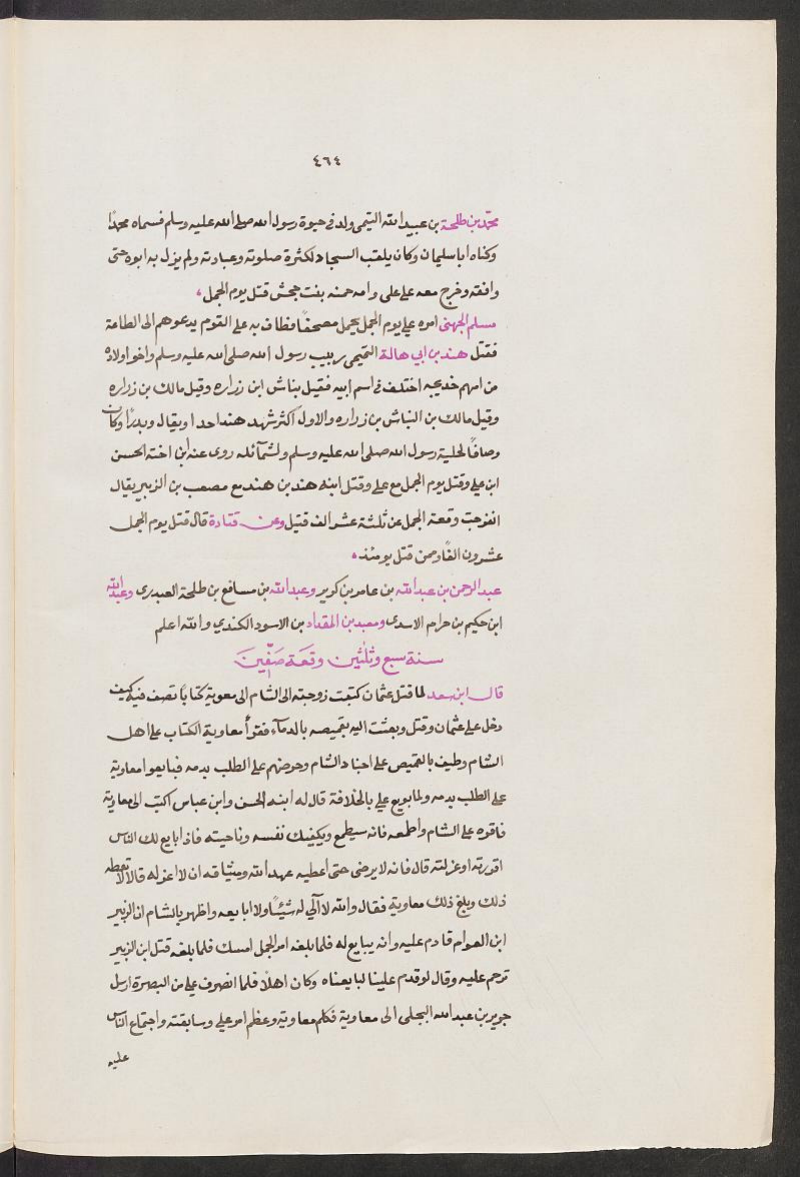 ٤٦٤
محمد بن طلحة بن عبيد الله التيمى ولد فى حيوة رسول الله صلى الله عليه وسلم فسماه محمدًا
وكناه ابا سليمان وكان يلقب السجاد لكثرة صلوته وعبادته ولم يزل به ابوه حتى
وافقه وخرج معه على على وامه حمنه بنت جحش قتل يوم الجمل
مسلم الجهنى امره على يوم الجمل بحمل مصحفًا فطاف به على القوم يدعوهم الى الطاعة
فقتل هند بن ابي هالة التميمى ربيب رسول الله صلى الله عليه وسلم واخو اولاده
من امهم خديجه اختلف فى اسم ابيه فقيل بناش ابن زراره وقيل مالك بن زراره
وقيل مالك بن النباش بن زراره والاول اكثر شهد هند احدا ويقال وبدرًا وكان
وصافًا لحلية رسول الله صلى الله عليه وسلم ولشمآئله روى عنه ابن اخته الحسن
ابن على وقتل يوم الجمل مع على وقتل ابنه هند بن هند مع مصعب بن الزبير يقال
انفرجت وقعة الجمل عن ثلثة عشر الف قتيل وعن قتادة قال قتل يوم الجمل
عشرون الفًا وممن قتل يومئذ
عبد الرحمن بن عبد الله بن عامر بن كريز وعبد الله بن مسافع بن طلحة العبدرى وعبد الله
ابن حكيم بن حرام الاسدى ومعبد بن المقداد بن الاسود الكندي والله اعلم
سنة سبع وثلٰثين وقعة صفّين
قال ابن سعد لما قتل عثمان كتبت زوجته الى الشام الى معوية كتابًا تصف فيه كيف
دخل على عثمان وقتل وبعثت اليه بقميصه بالدمآء فقرأ معاوية الكتاب على اهل
الشام وطيف بالقميص على اجناد الشام وحرضهم على الطلب بدمه فبايعوا معاوية
على الطلب بدمه ولما بويع على بالخلافة قال له ابنه الحسن وابن عباس اكتب الى معاوية
فاقره على الشام واطمعه فانه سيطمع ويكفيك نفسه وناحيته فاذا بايع لك الناس
اقررته او عزلته قال فانه لا يرضى حتى اعطيه عهد الله وميثاقه ان لا اعزله قالا لا تعطه
ذلك وبلغ ذلك معاوية فقال والله لا آلي له شيئًا ولا ابايعه واظهر بالشام ان الزبير
ابن العوام قادم عليه وانه يبايع له فلما بلغه امر الجمل امسك فلما بلغه قتل ابن الزبير
ترحم عليه وقال لو قدم علينا لبايعناه وكان اهلًا فلما انصرف على من البصرة ارسل
جرير بن عبد الله البجلى الى معاوية فكلم معاوية وعظم امر على وسابقته واجتماع الناس
عليه